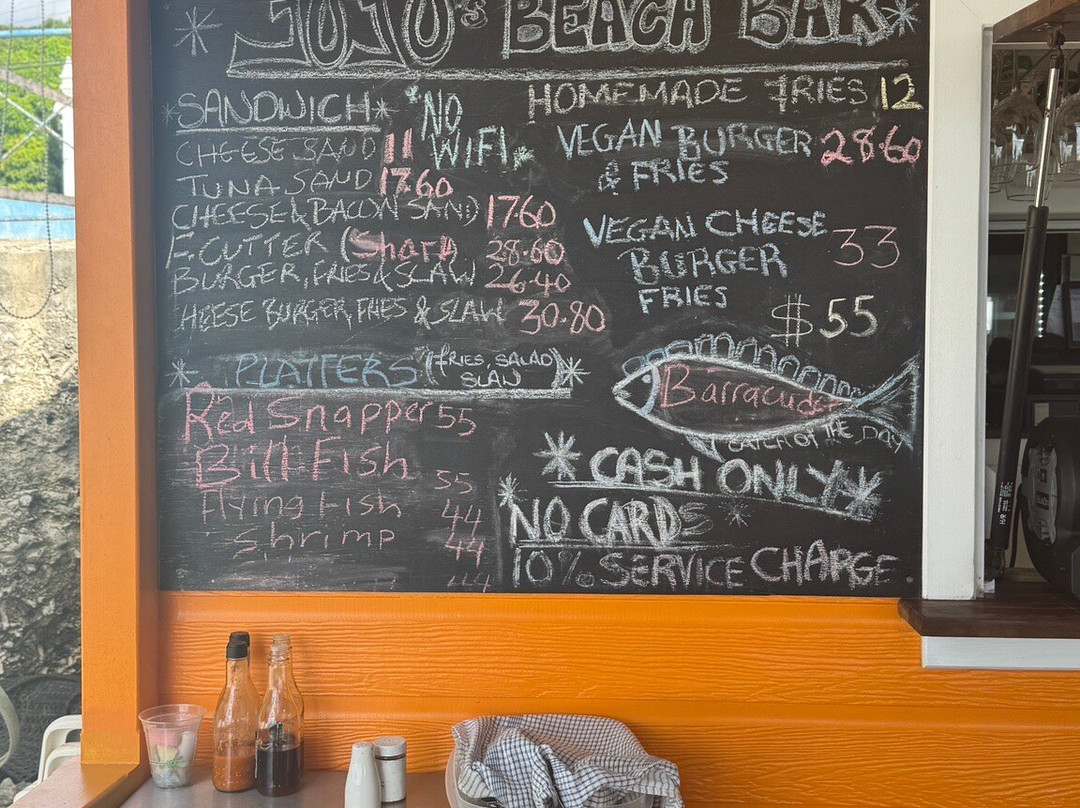 JOJO's BEACH BAR
SANDWICH
CHEESE SAND 11
TUNA SAND 17.60
CHEESE & BACON SAND 17.60
F. CUTTER (Shark) 28.60
BURGER, FRIES & SLAW 26.40
CHEESE BURGER, FRIES & SLAW 30.80
NO
WIFI
HOMEMADE FRIES 12
VEGAN BURGER 28.60
& FRIES
VEGAN CHEESE
BURGER 33
FRIES
$55
PLATTERS (FRIES, SALAD
SLAW)
Red Snapper 55
Bill Fish 55
Flying Fish 44
Shrimp 44
44
Barracuda
CATCH OF THE DAY
CASH ONLY
NO CARDS
10% SERVICE CHARGE